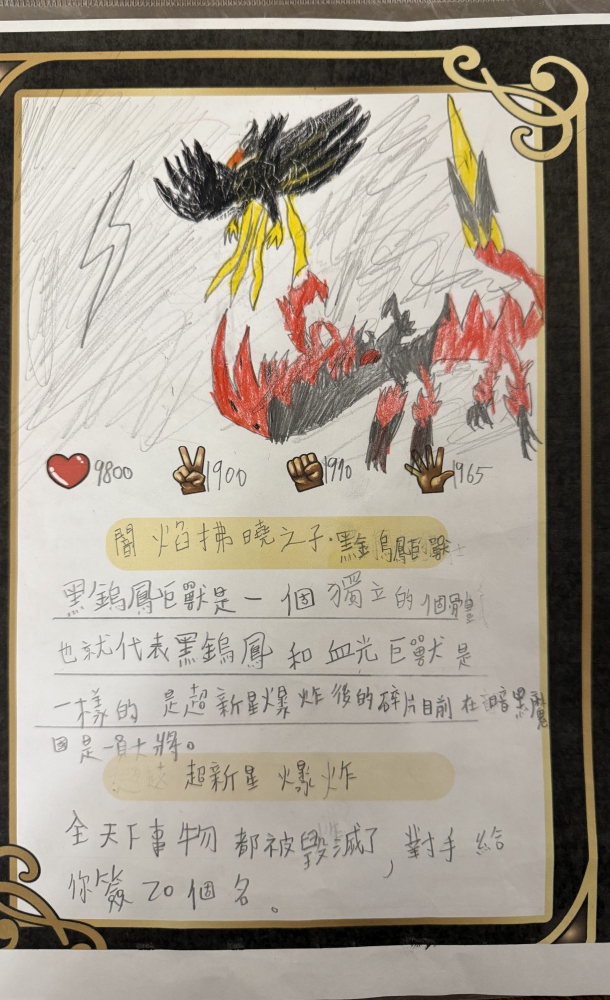 9800 1900 1910 1965
闇焰拂曉之子·黑金烏鳳巨獸
黑鎢鳳巨獸是一個獨立的個體
也就代表黑鎢鳳和血光巨獸是
一樣的 是超新星爆炸後的碎片目前在暗黑魔
國是一員大將。
超新星爆炸
全天下事物都被毀滅了,對手給
你簽20個名。